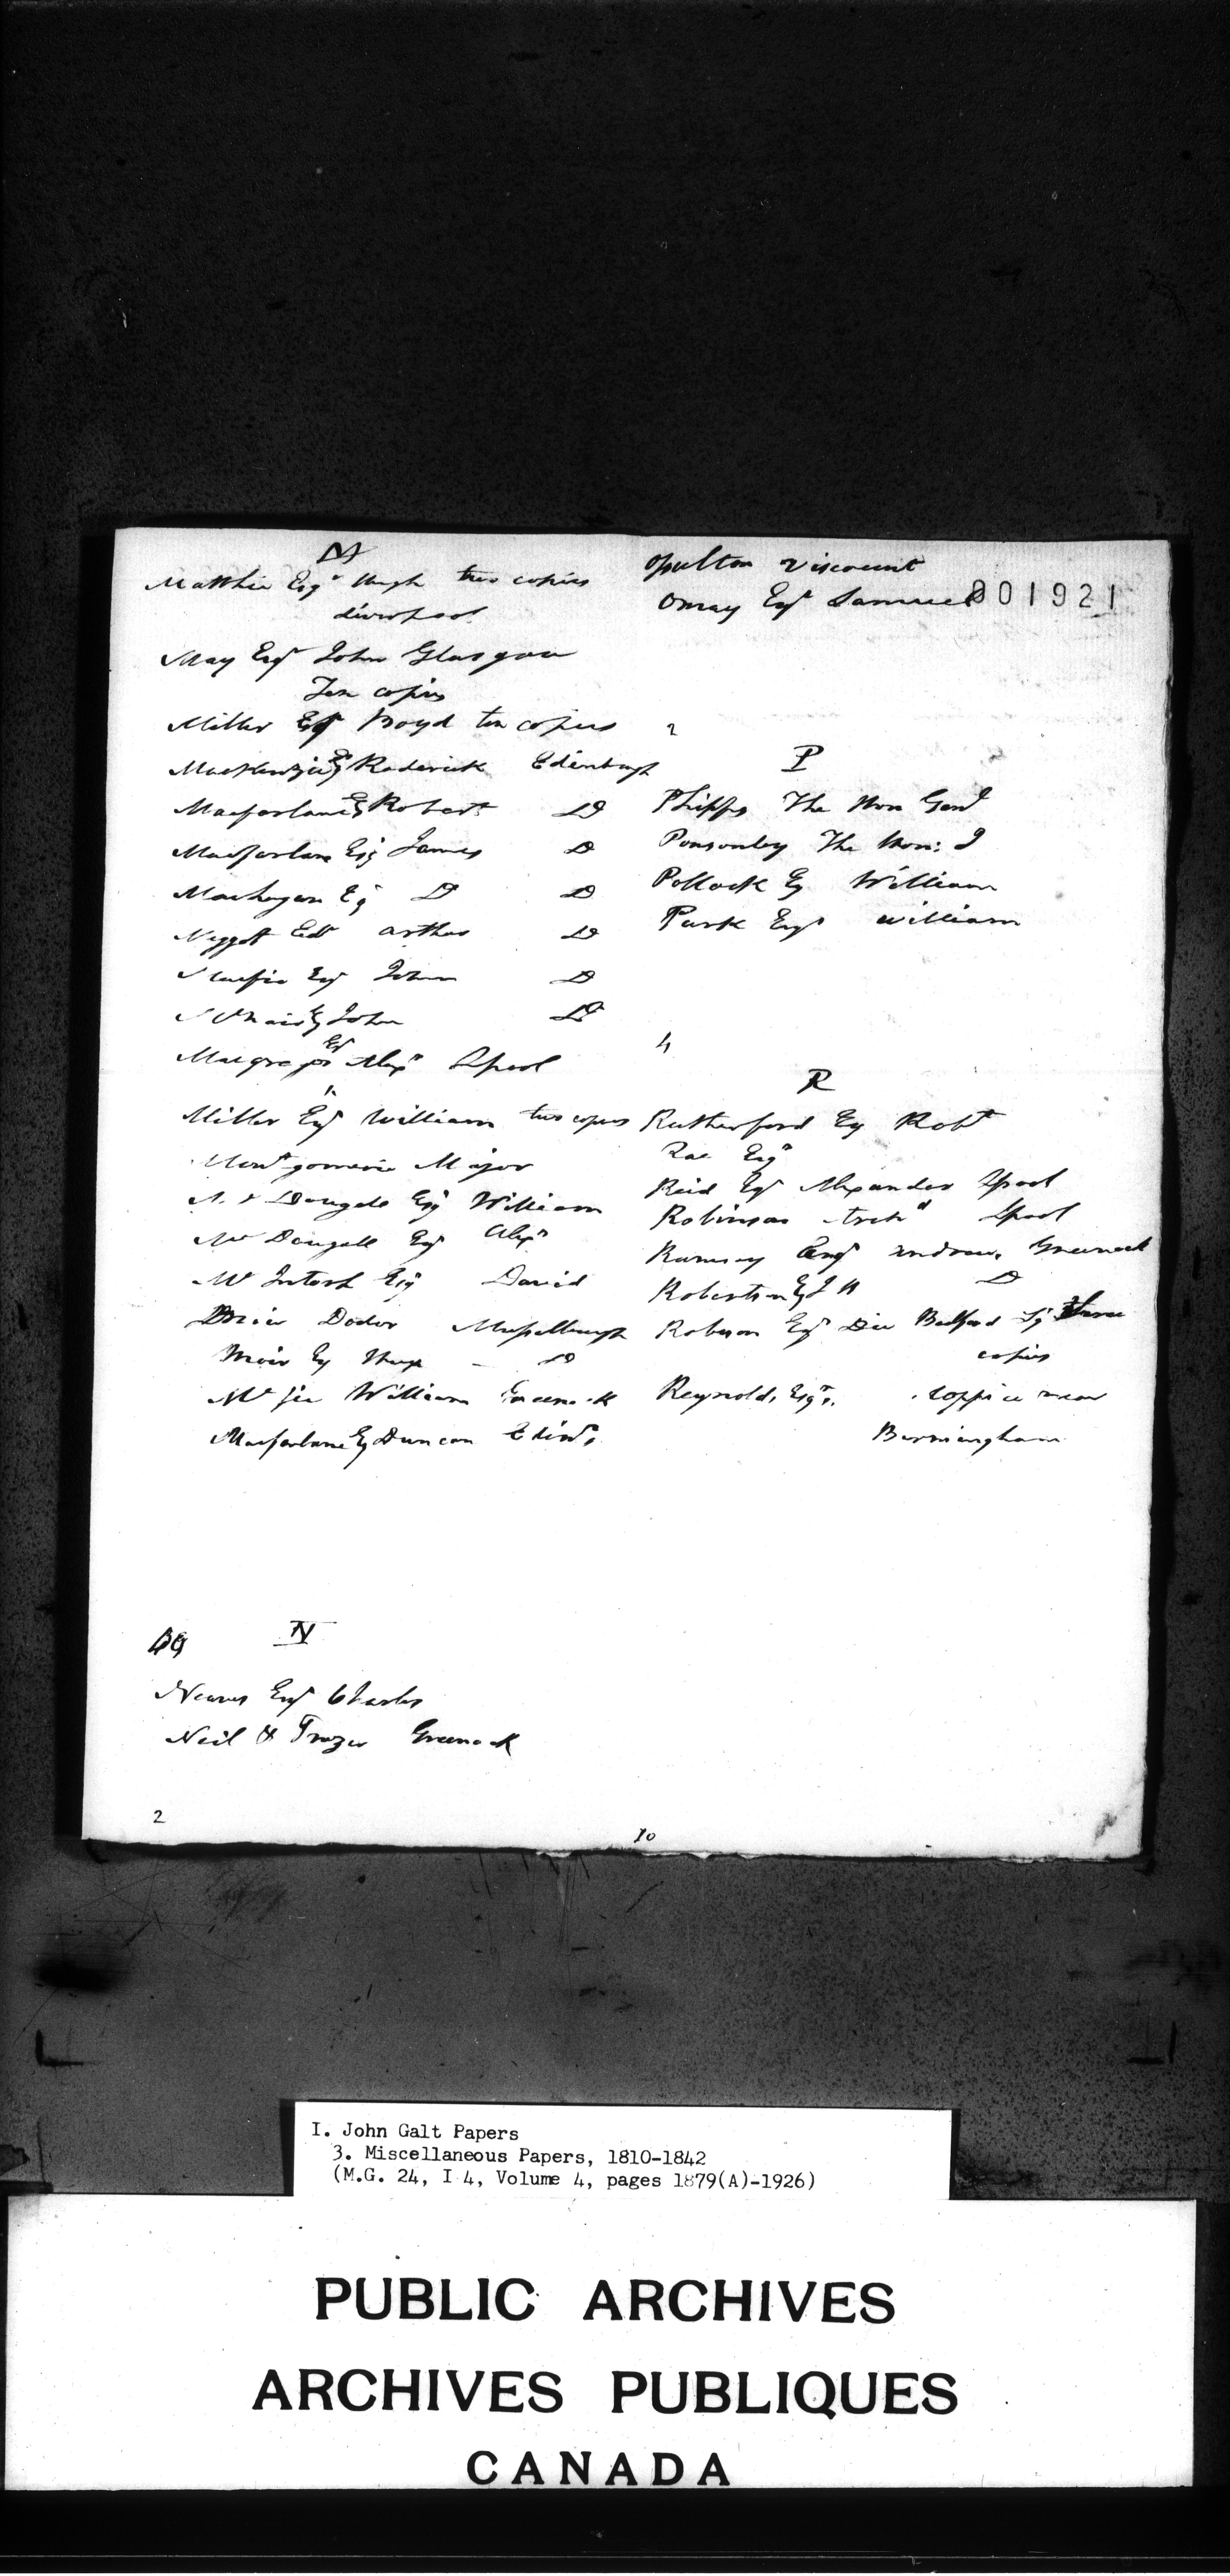 M
Matthie Esqr Hugh two copies
Liverpool
May Esqr John Glasgow
Ten copies
Miller Esqr Boyd ten copies
MacKenzie Esq Roderick Edinburgh
Macfarlane Esq Robert Do
Macfarlane Esq James Do
Esq D Do
Arthur Do
Macfie Esqr John Do
Esq John Do
Macgregor Esqr Alexr Lpool
Miller Esqr William two copies
Montgomerie Major
Mc Dougall Esq William
Mc Dougall Esqr Alexr
Mc Intosh Esq David
Doctor Musselburgh
Moir Esq Do
William Greenock
Macfarlane Esq Duncan Edinr
49
N
Neaves Esqr Charles
Neil & Frazer Greenock
2
Viscount
Omay Esqr Samuel
001921
2
P
Phipps The Hon Genl
Ponsonby The Hon: J
Pollock Esq William
Park Esqr William
4
R
Rutherford Esq Robt
Rae Esqr
Reid Esqr Alexander Lpool
Robinson Archd Lpool
Ramsay Esqr Andrew Greenock
Robertson Esq J H Do
Robson Esqr Bedford Sq Three
copies
Reynolds Esqr. near
Birmingham
10
I. John Galt Papers
3. Miscellaneous Papers, 1810-1842
(M.G. 24, I 4, Volume 4, pages 1879(A)-1926)
PUBLIC ARCHIVES
ARCHIVES PUBLIQUES
CANADA